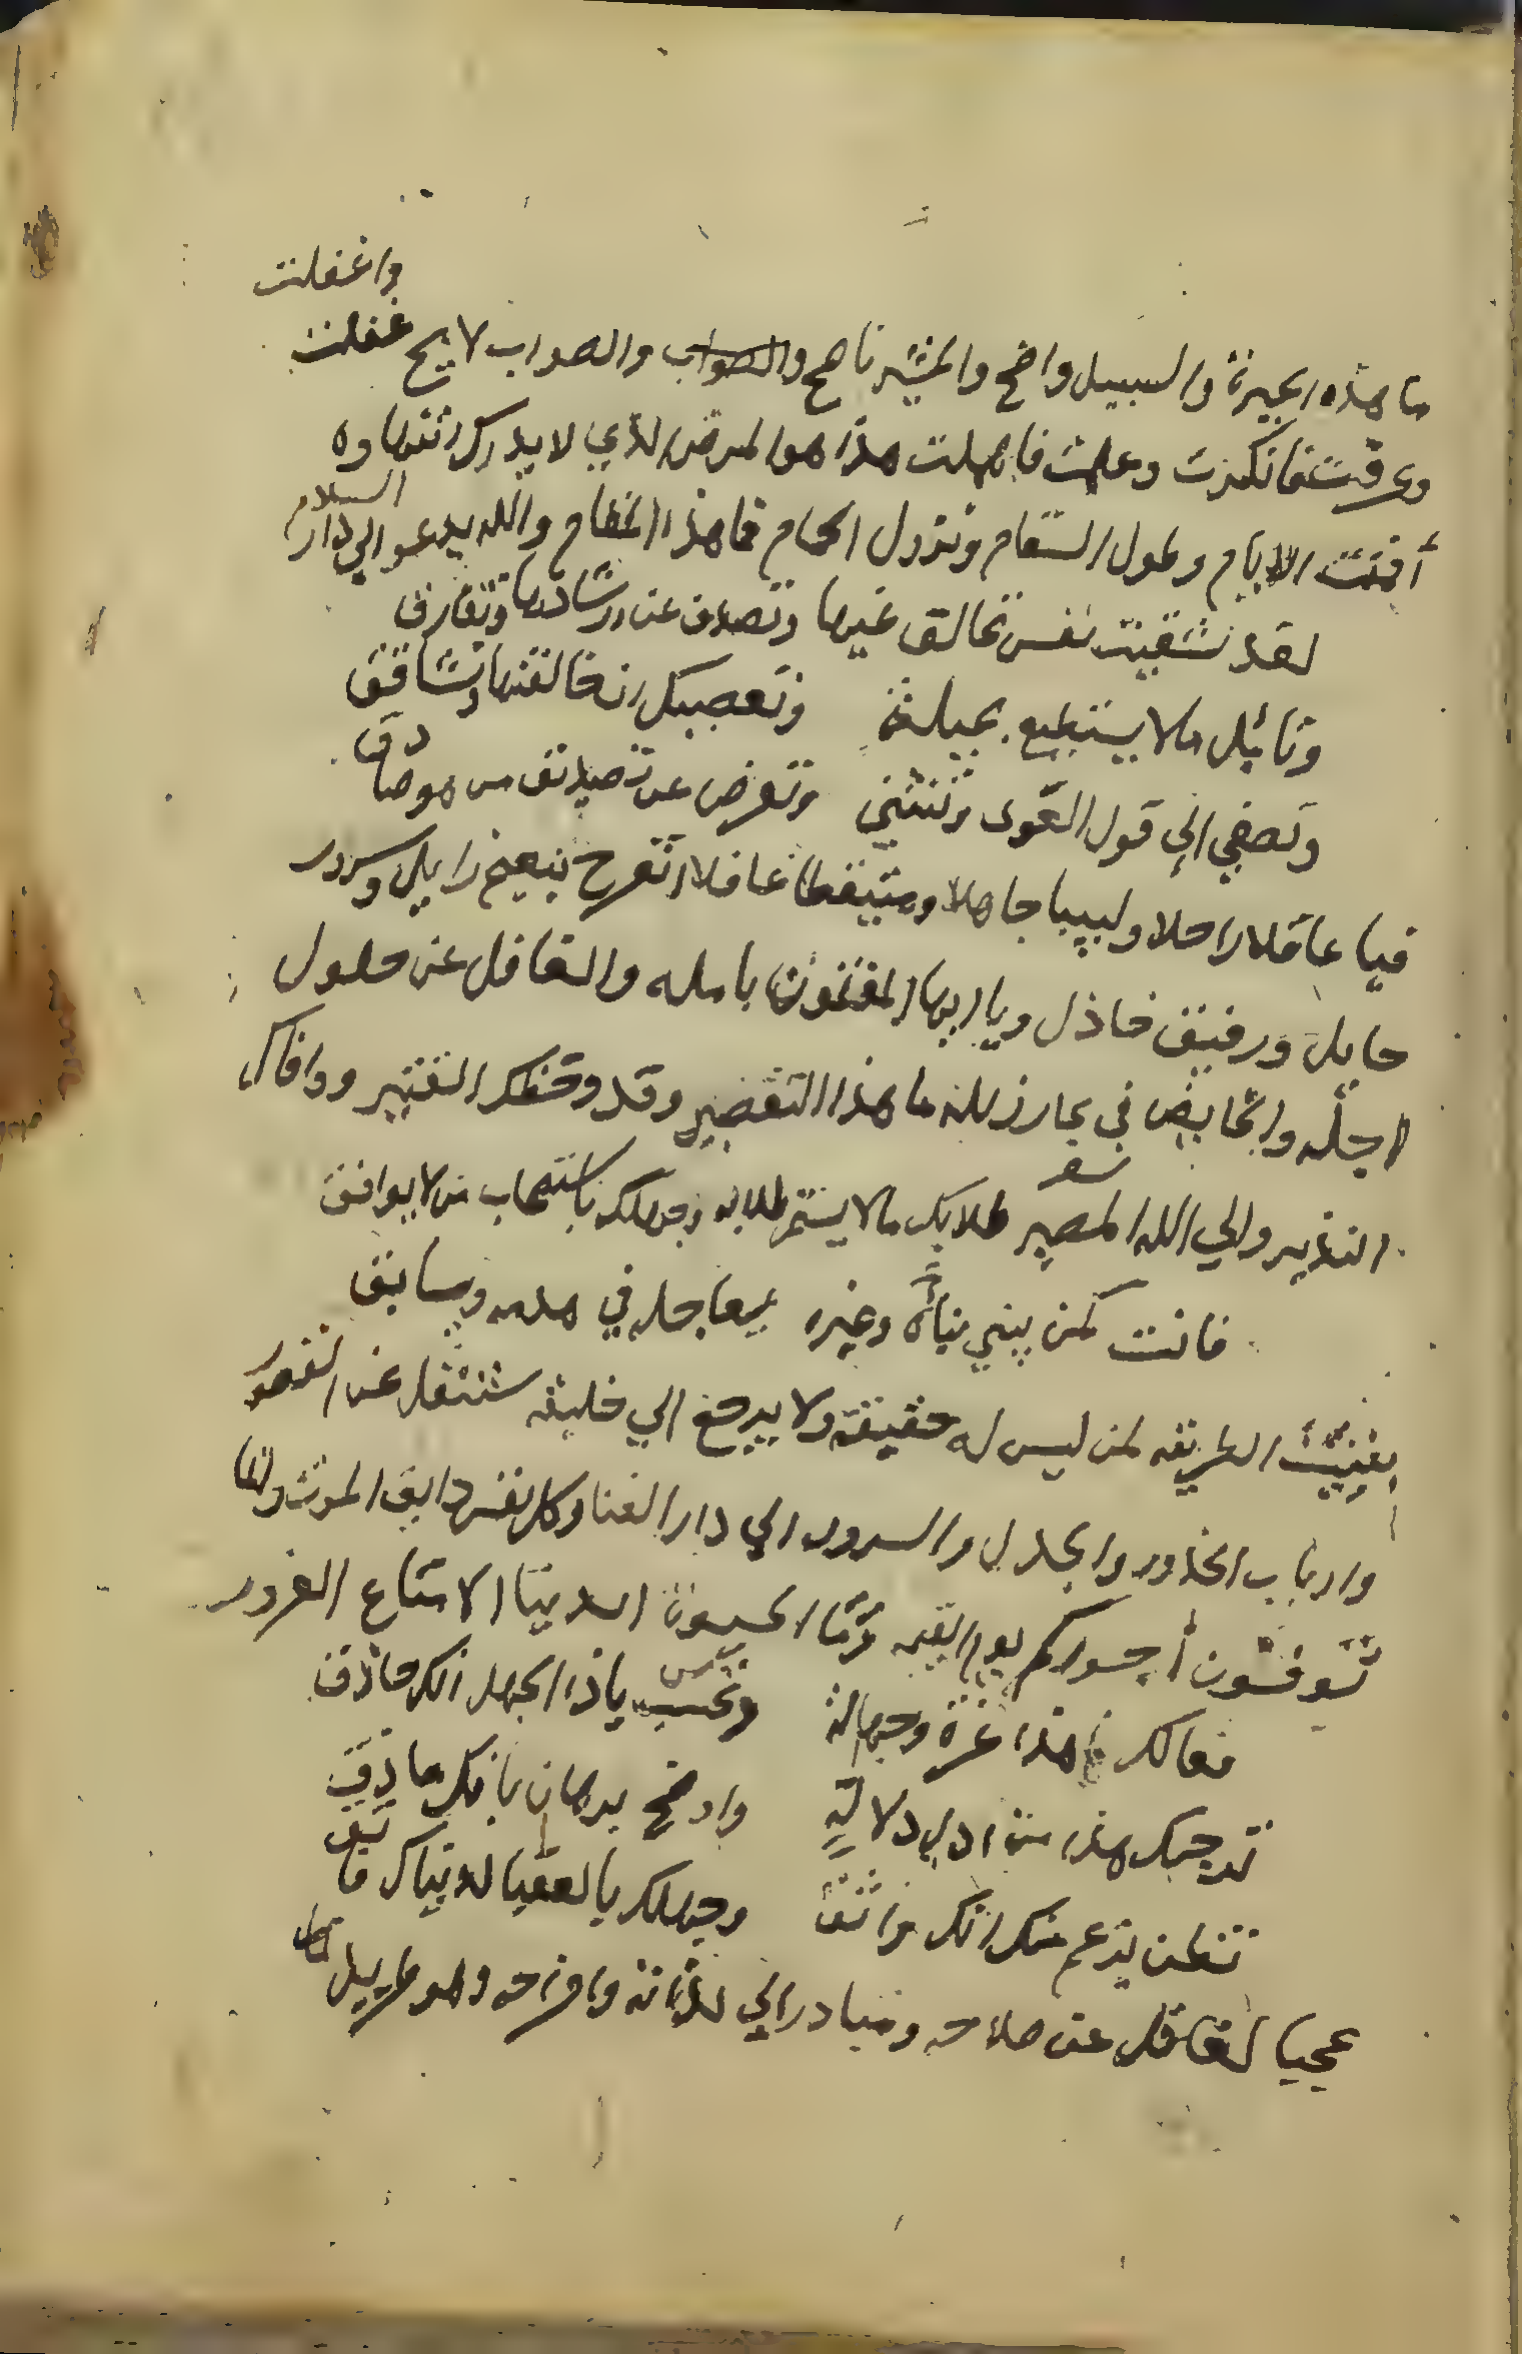 ما هذه الحيرة والسبيل واضح والمشير ناصح والصواب والصواب لايح غفلت واغفلت
وعرفت فانكرت وعلمت فاهملت هذا هو المرض الذي لا يدرك انتهاوه
أفنت الايام وطول السقام ونزول الحمام فما هذا المقام والله يدعو الي دار السلام
لقد شقيت نفس تخالق غيها وتصدف عن ارشادها وتفارق
وتائيل ملا يستطيع بحيلة وتعصيك ان خالفتها وتشاقق
وتصغي الي قول الغوى وتنثني وتعرض عن تصديق من هو صادق
فيا عاقلا راحلا ولبيبا جاهلا ومتيقظا غافلا اتفرح بنعيم زايل وسرور
حايل ورفيق خاذل ويا ايها المفتون بامله والغافل عن حلول
اجله والخايض في بحار زلله ما هذا التقصير وقد وخطك القتير ووافاك
النذير والي الله المصير شعر طلابك مالا يستتم طلابه وجهلك باستصحاب من لا يوافق
فانت كمن يبني بناء وغيره يعاجله في هدمه ويسابق
بغيت الطريقه لمن ليس له حقيقه ولا يرجع الي خليقه ستنتقل عن القصور
وارباب الخدور والجدل والسرور الي دار الفنا وكل نفس ذايقة الموت وانما
توفون أجوركم يوم القيمه وما الحيوة الدنيا الا متاع الغرور
فمالك هذا غرة وجهالة وتحسب ياذا الجهل انك حاذق
ترجيك هذا من ادل دلالة واوضح برهان بانك ماذق
تظن بزعم منك انك واثق وجهلك بالعقبا لدنياك فاتق
عجبا لغافل عن صلاحه ومبادر الي لذاته وافراحه وهو